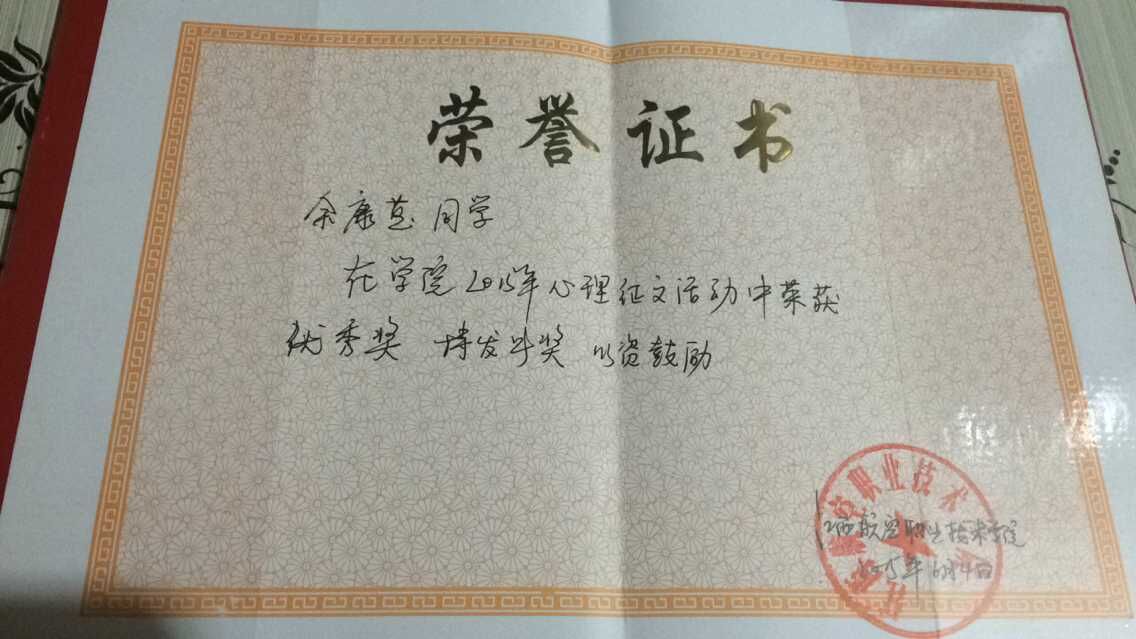 荣誉证书
余康慧同学
在学院2015年心理征文活动中荣获
优秀奖 特发此奖 以资鼓励
职业技术
江西航空职业技术学院
2015年6月4日